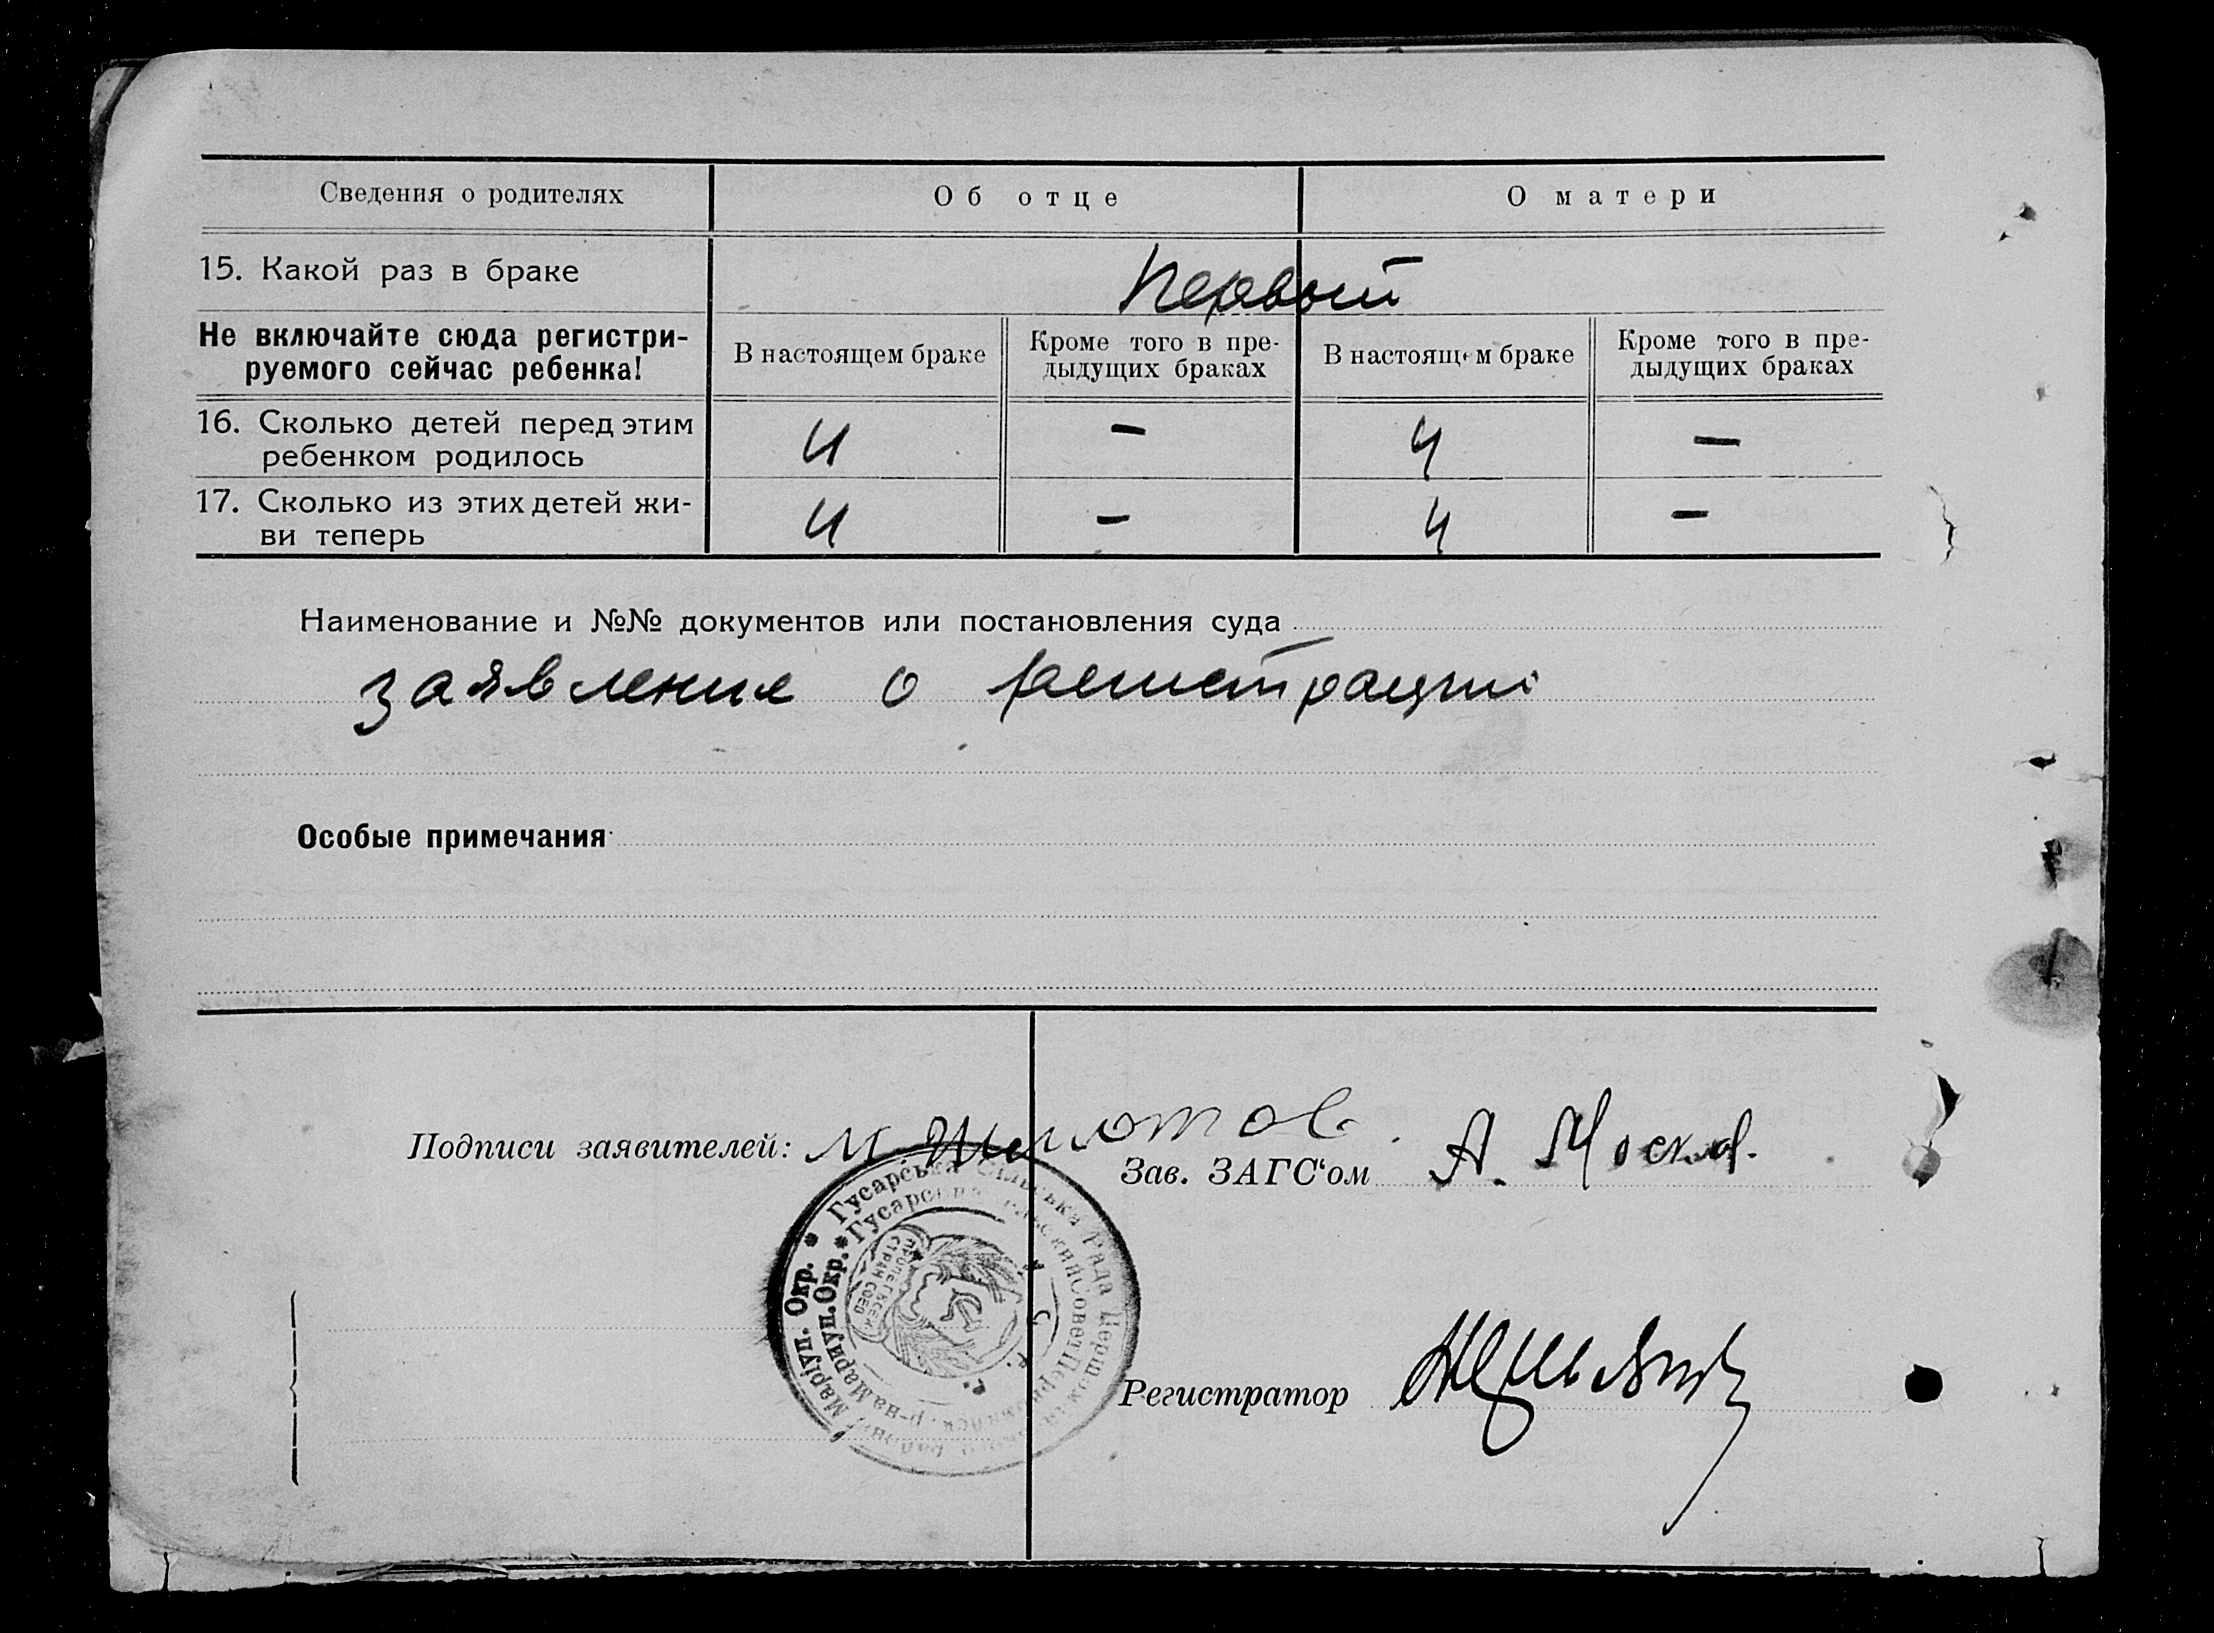 Сведения о родителях
Об отце
О матери
15. Какой раз в браке
Первый
Не включайте сюда регистри-
руемого сейчас ребенка!
В настоящем браке
Кроме того в пре-
дыдущих браках
В настоящем браке
Кроме того в пре-
дыдущих браках
16. Сколько детей перед этим
ребенком родилось
4
-
4
-
17. Сколько из этих детей жи-
ви теперь
4
-
4
-
Наименование и №№ документов или постановления суда
заявление о регистрации
Особые примечания
Подписи заявителей: М.
Зав. ЗАГС‘ом А.
Регистратор
Гусарська Сільська Рада Маріуп. Окр. *
* Гусарский Совет р-на Мариуп. Окр.